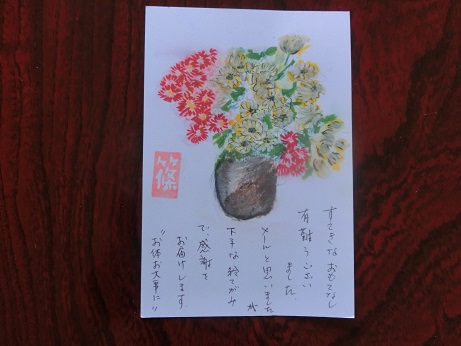 すてきな おもてなし
有難うござい
ました。
メールと思いました
が
下手な絵てがみ
で、感謝を
お届けします。
"お体お大事に"
篠